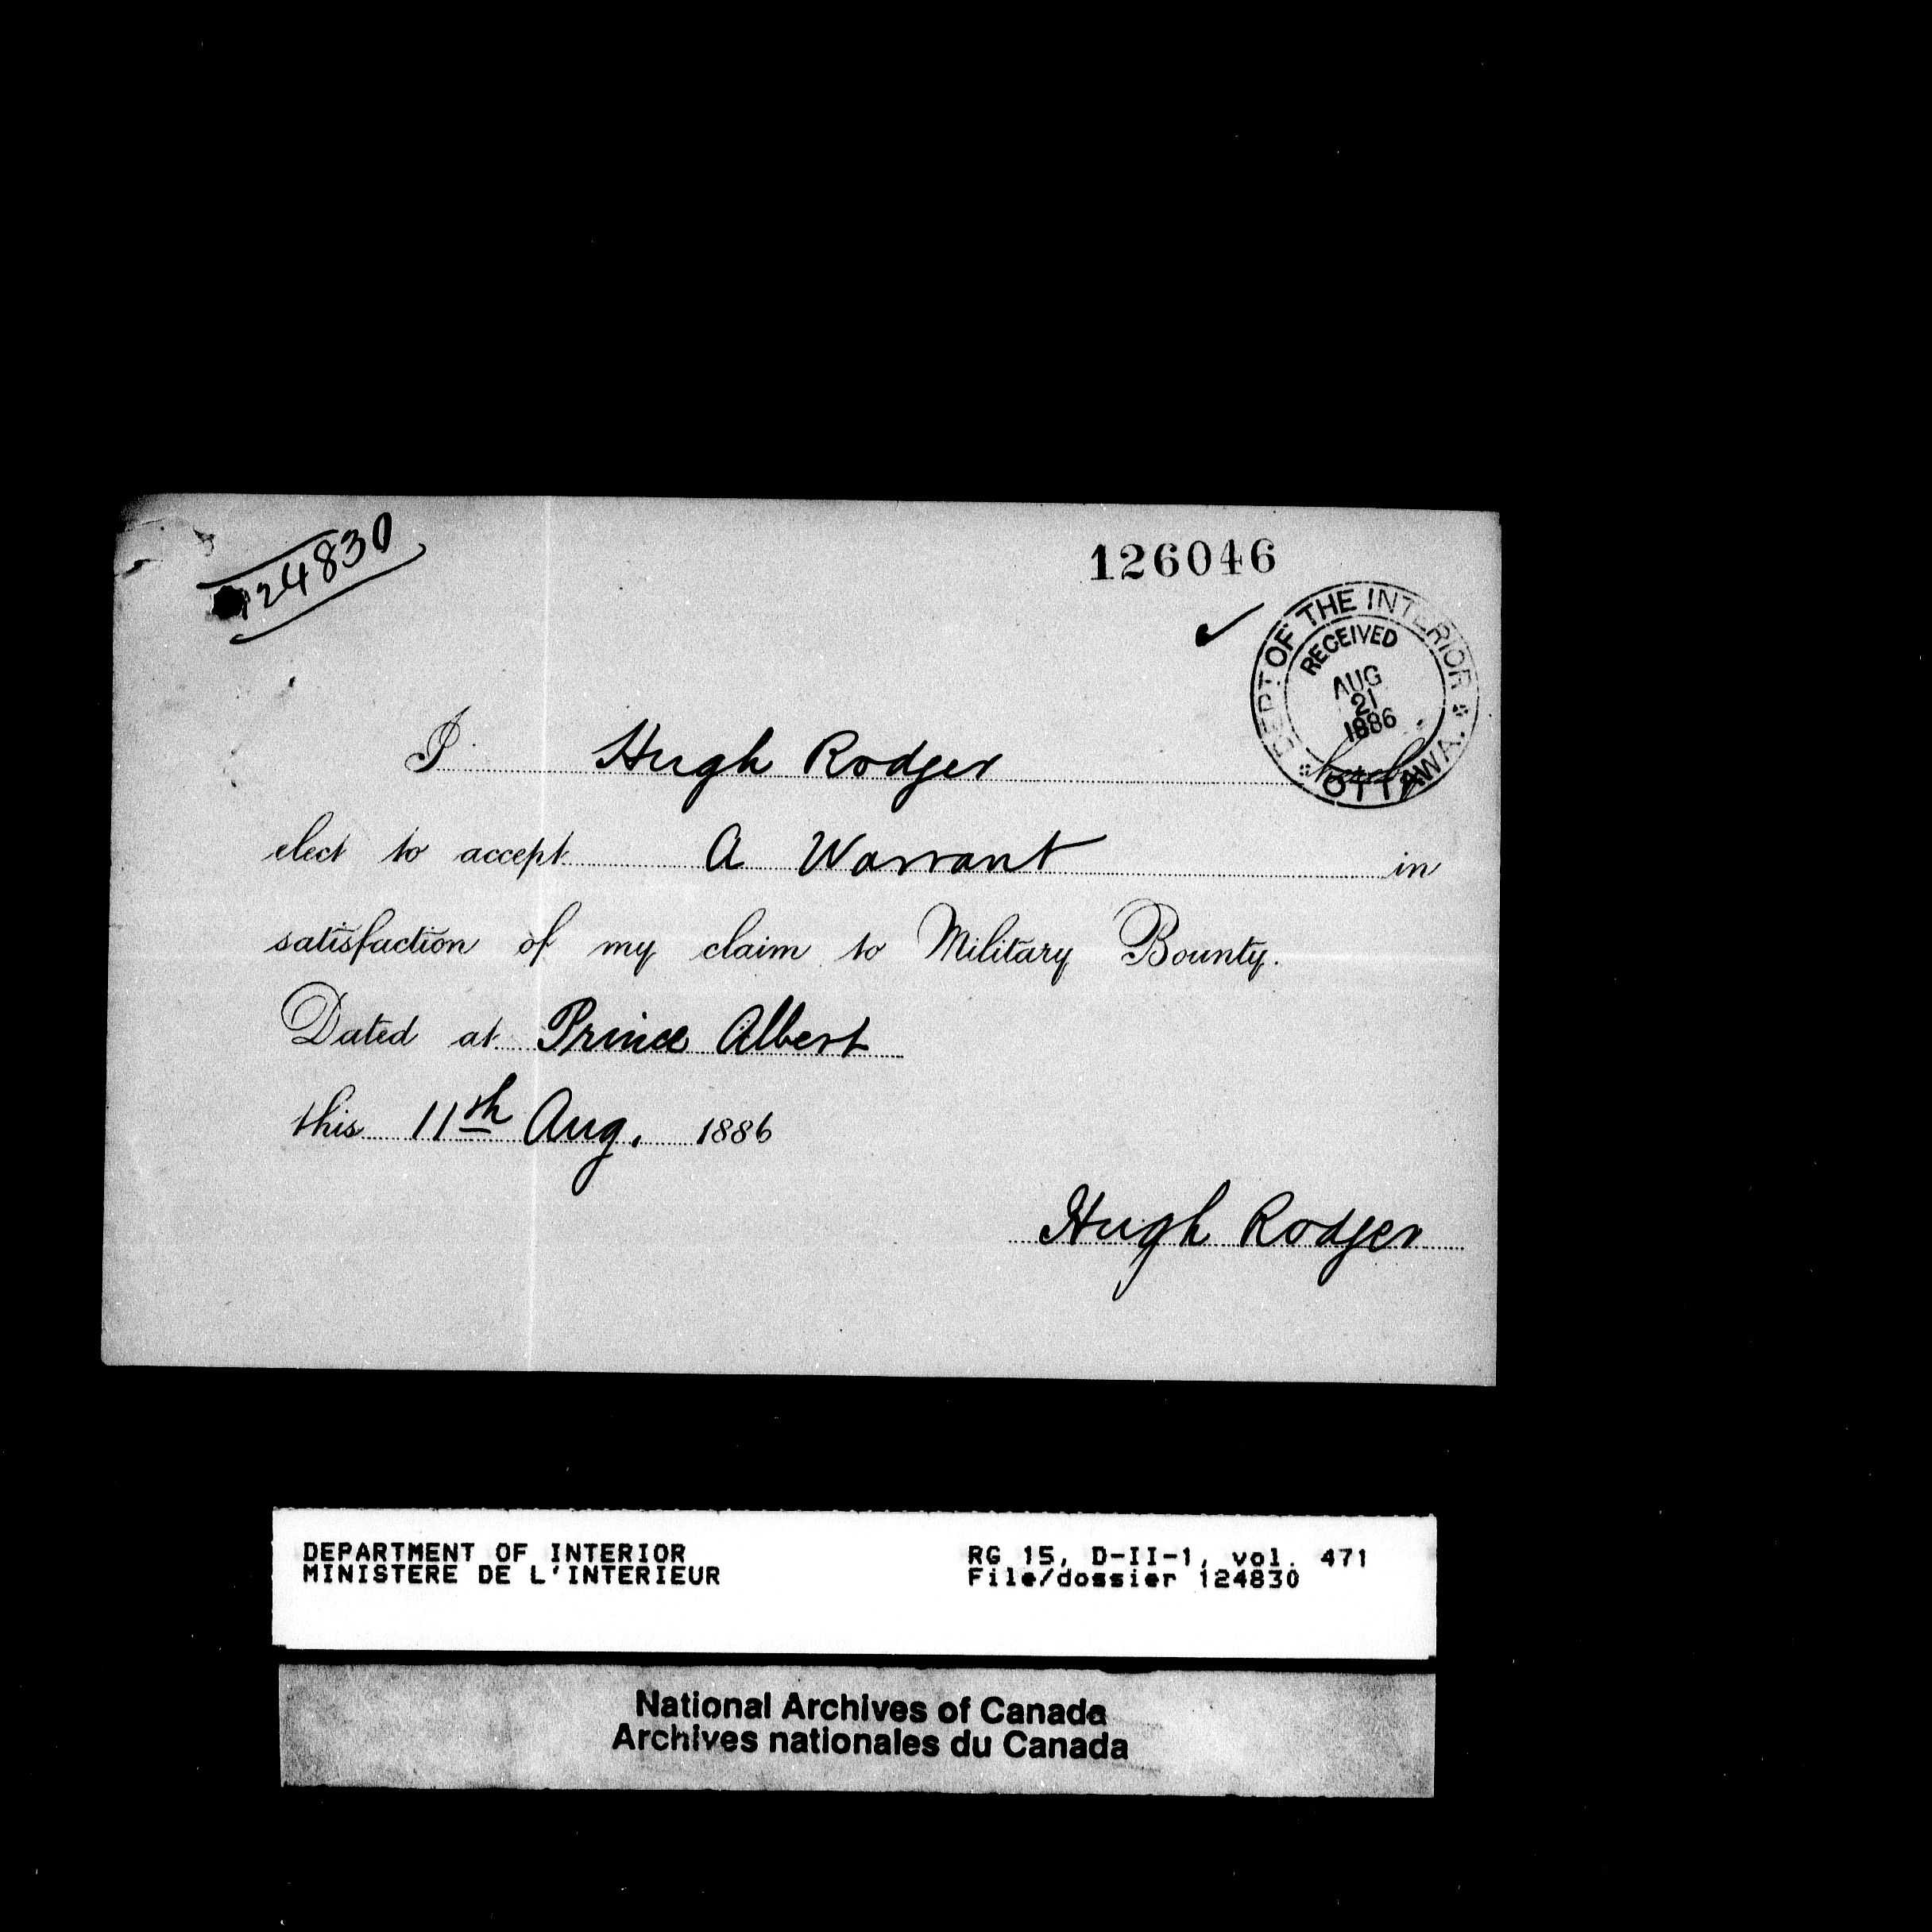 124830
126046
DEPT OF THE INTERIOR
RECEIVED
AUG
21
1886
OTTAWA.
I Hugh Rodger hereby
elect to accept A Warrant in
satisfaction of my claim to Military Bounty.
Dated at Prince Albert
this 11th Aug. 1886
Hugh Rodger
DEPARTMENT OF INTERIOR
MINISTERE DE L'INTERIEUR
RG 15, D-II-1, vol. 471
File/dossier 124830
National Archives of Canada
Archives nationales du Canada